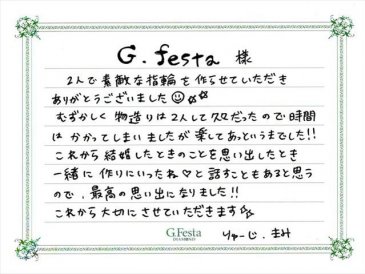 G.festa 様
2人で素敵な指輪を作らせていただき
ありがとうございました☺☆☆
むずかしく物造りは2人して欠だったので時間
はかかってしまいましたが楽してあっというまでした!!
これから結婚したときのことを思い出したとき
一緒に作りにいったね♡と話すこともあると思う
ので、最高の思い出になりました!!
これから大切にさせていただきます☆
G.Festa
DIAMOND
りゅーじ.まみ